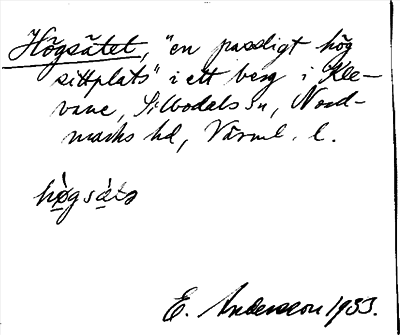 Högsätet, "en pasdigt hög
sittplats" i ett berg i Kle-
vane, Silbodals sn, Nord-
marks hd, Värml. l.
E. Andersson 1933.